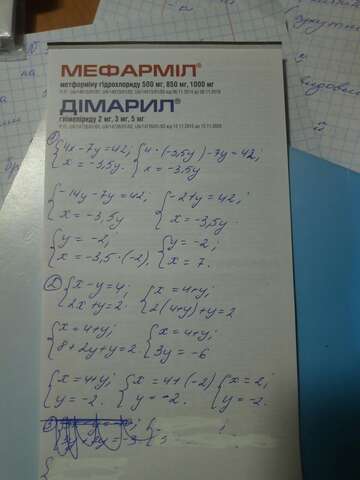 МЕФАРМІЛ®
метформіну гідрохлориду 500 мг, 850 мг, 1000 мг
ДІМАРИЛ®
глімепіриду 2 мг, 3 мг, 5 мг
1) {4x-7y=42; x=-3,5y. {4·(-3,5y)-7y=42; x=-3,5y
{-14y-7y=42; x=-3,5y {-21y=42; x=-3,5y.
{y=-2; x=-3,5·(-2). {y=-2; x=7.
2) {x-y=4; 2x+y=2. {x=4+y; 2(4+y)+y=2
{x=4+y; 8+2y+y=2. {x=4+y; 3y=-6
{x=4+y; y=-2. {x=4+(-2) y=-2. {x=2; y=-2.
3)